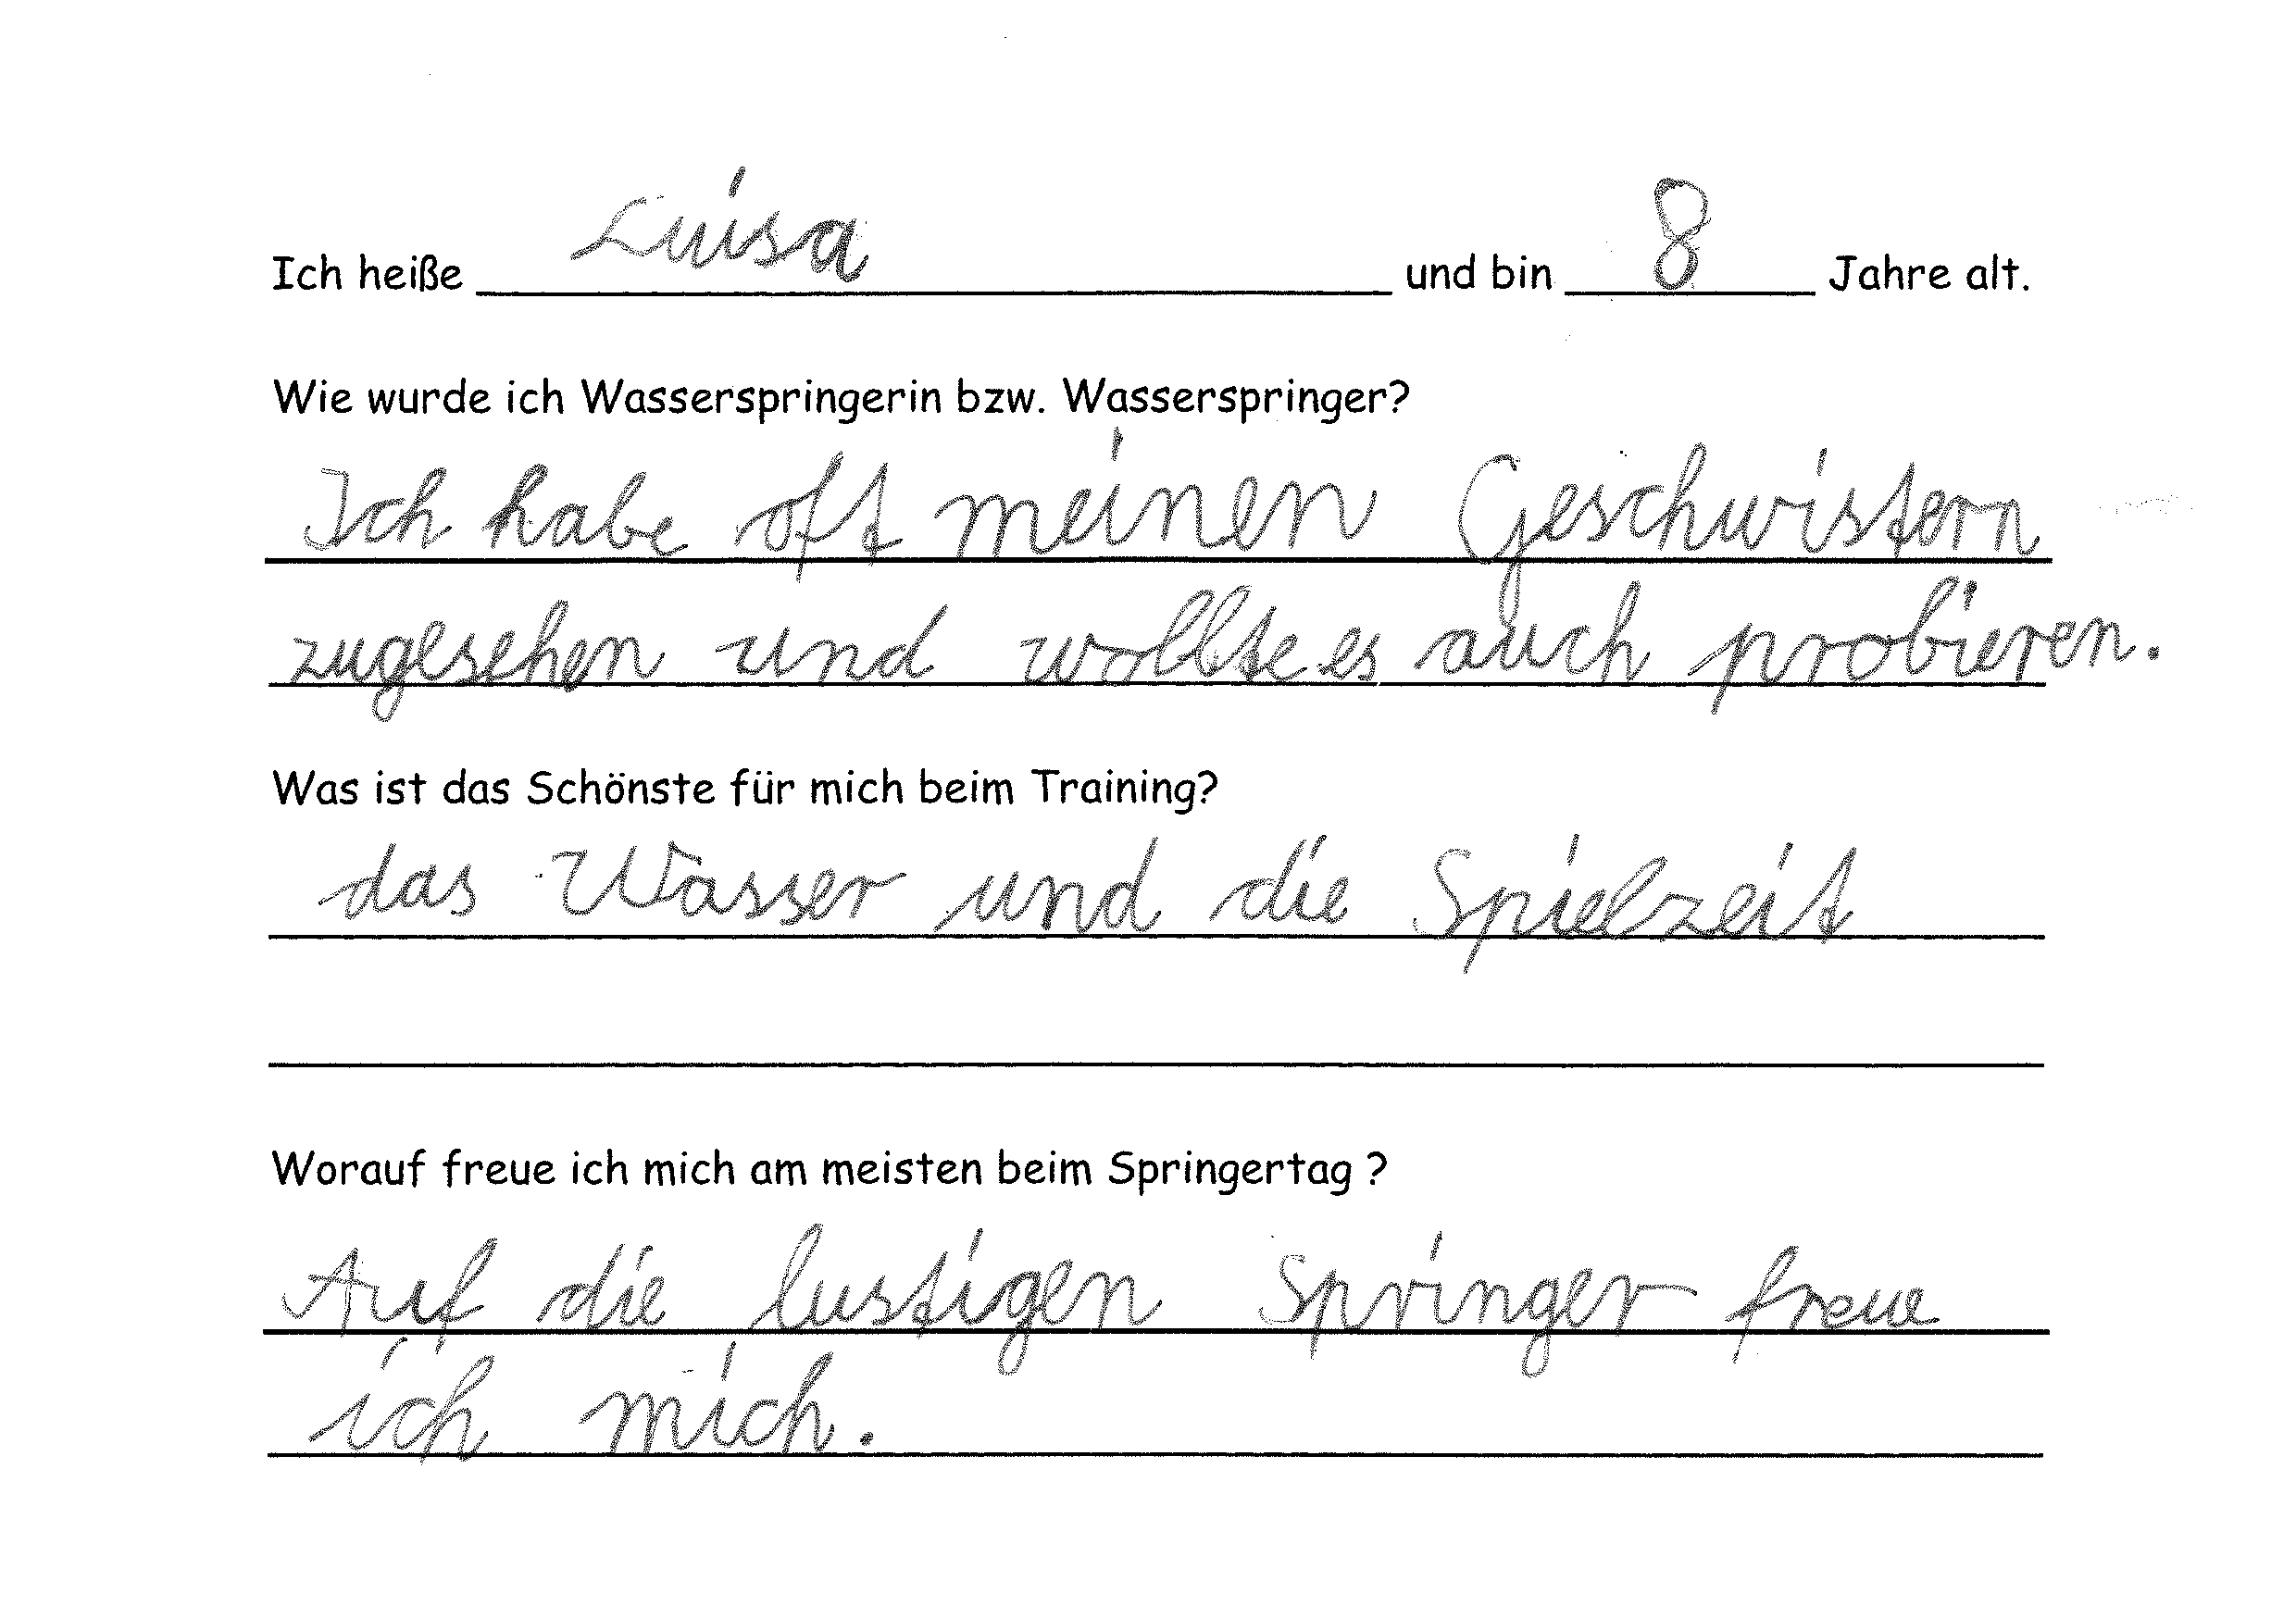 Ich heiße Luisa und bin 8 Jahre alt.
Wie wurde ich Wasserspringerin bzw. Wasserspringer?
Ich habe oft meinen Geschwistern
zugesehen und wollte es auch probieren.
Was ist das Schönste für mich beim Training?
das Wasser und die Spielzeit
Worauf freue ich mich am meisten beim Springertag ?
Auf die lustigen Springer freue
ich mich.